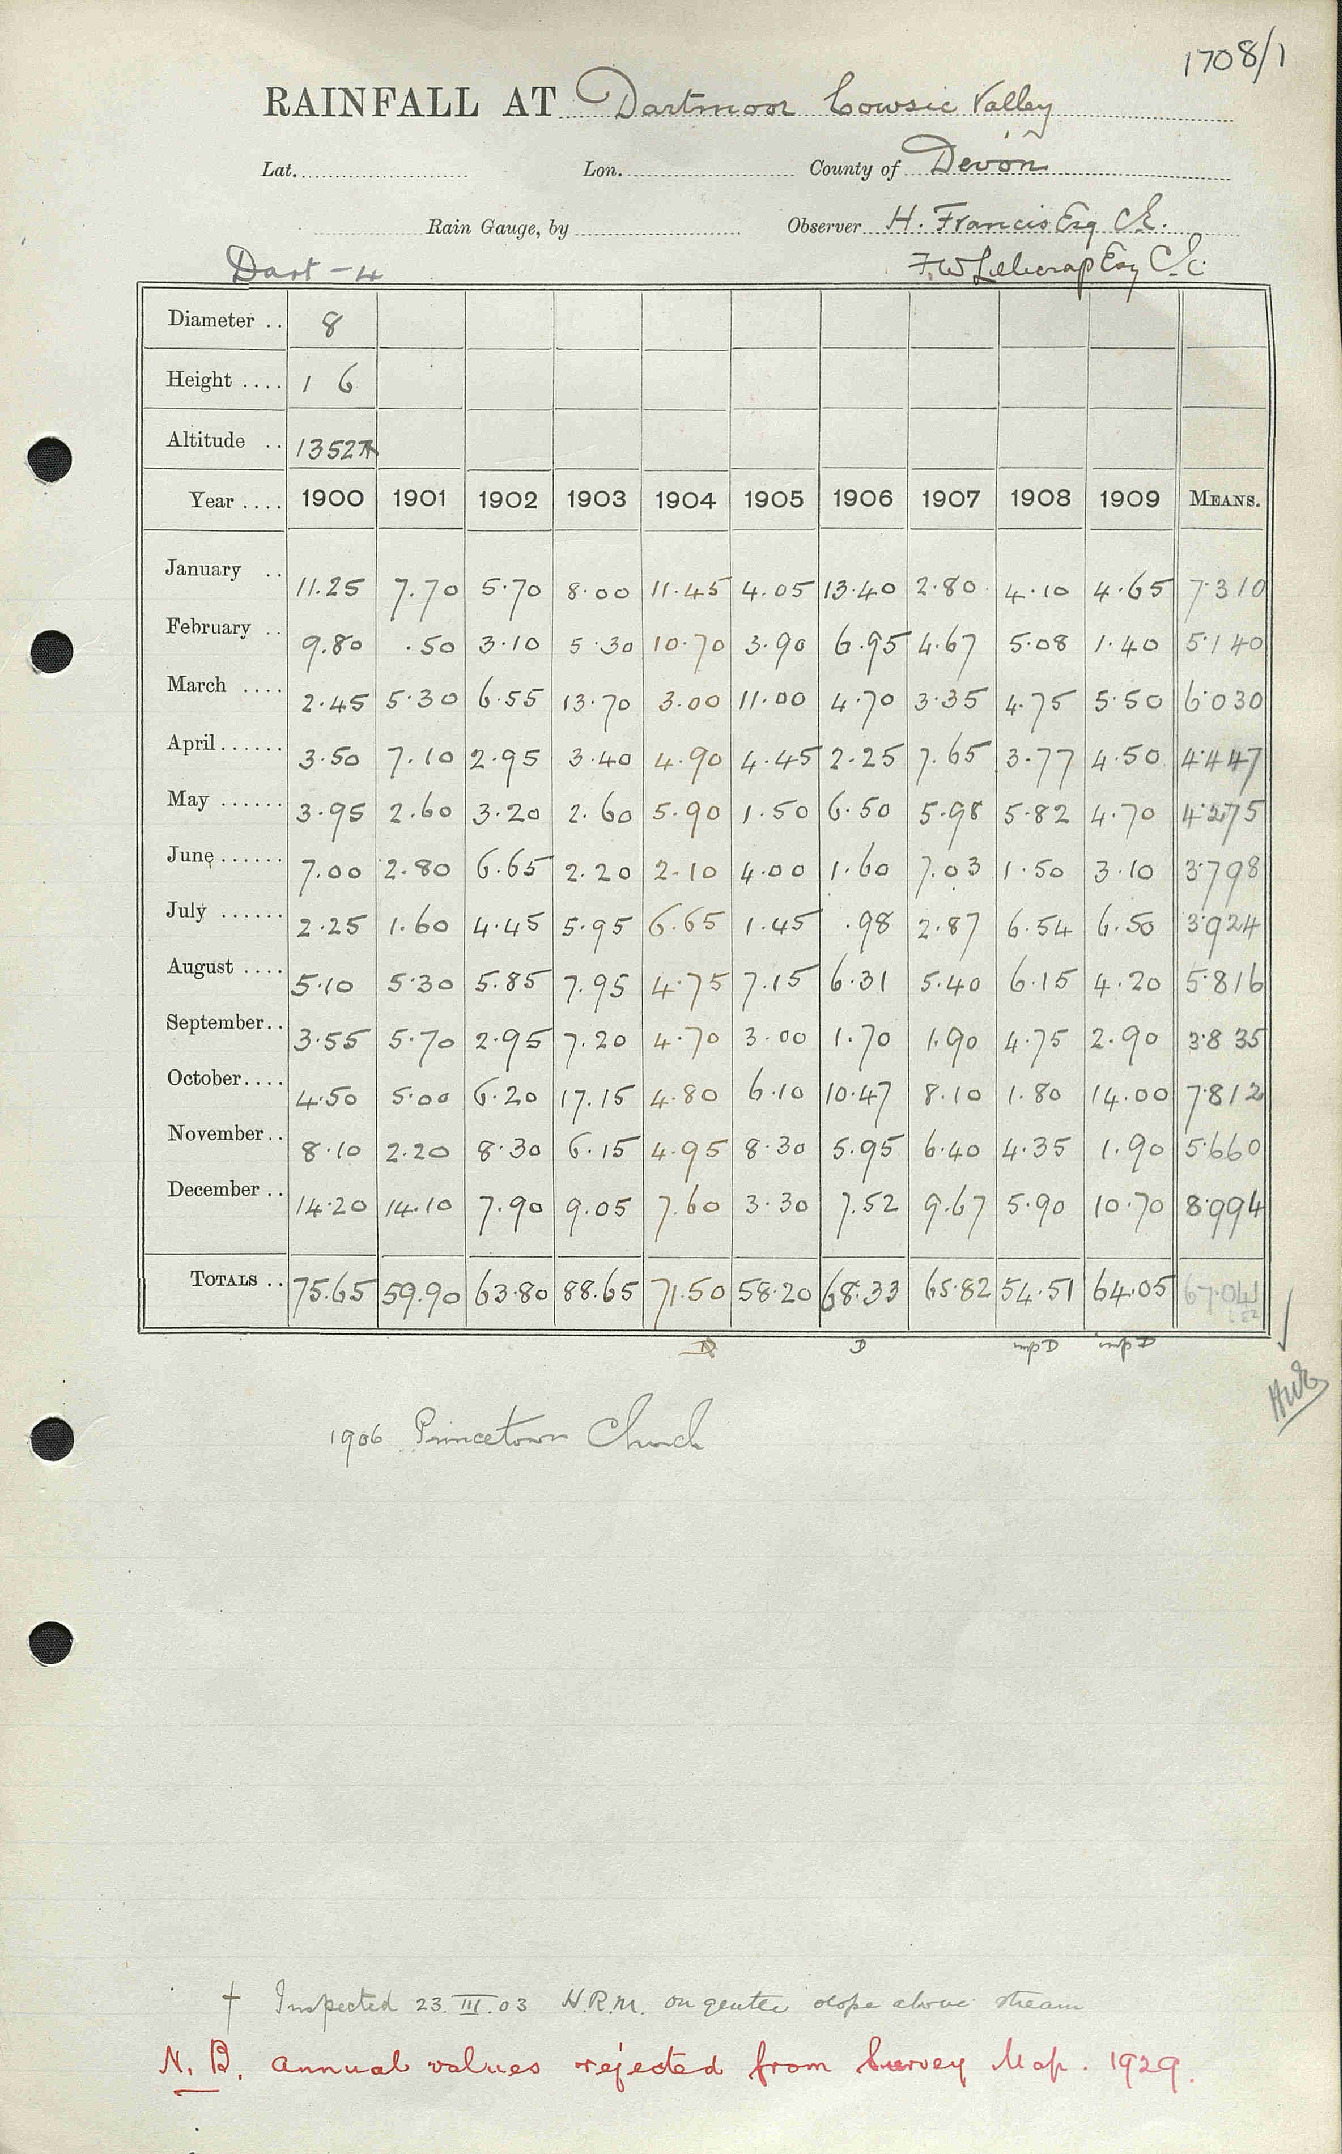 1708/1
RAINFALL AT Dartmoor Cowsic Valley
Lat. Lon. County of Devon
Rain Gauge, by Observer H. Francis Esq C.E.
Dart - 4 F.W. Esq C.E.
Diameter .. 8
Height .... 1 6
Altitude .. 1352
Year .... 1900 1901 1902 1903 1904 1905 1906 1907 1908 1909 MEANS.
January .. 11.25 7.70 5.70 8.00 11.45 4.05 13.40 2.80 4.10 4.65 7.310
February .. 9.80 .50 3.10 5.30 10.70 3.90 6.95 4.67 5.08 1.40 5.140
March .... 2.45 5.30 6.55 13.70 3.00 11.00 4.70 3.35 4.75 5.50 6.030
April...... 3.50 7.10 2.95 3.40 4.90 4.45 2.25 7.65 3.77 4.50 4.447
May ...... 3.95 2.60 3.20 2.60 5.90 1.50 6.50 5.98 5.82 4.70 4.275
June ...... 7.00 2.80 6.65 2.20 2.10 4.00 1.60 7.03 1.50 3.10 3.798
July ...... 2.25 1.60 4.45 5.95 6.65 1.45 .98 2.87 6.54 6.50 3.924
August .... 5.10 5.30 5.85 7.95 4.75 7.15 6.31 5.40 6.15 4.20 5.816
September.. 3.55 5.70 2.95 7.20 4.70 3.00 1.70 1.90 4.75 2.90 3.835
October.... 4.50 5.00 6.20 17.15 4.80 6.10 10.47 8.10 1.80 14.00 7.812
November.. 8.10 2.20 8.30 6.15 4.95 8.30 5.95 6.40 4.35 1.90 5.660
December .. 14.20 14.10 7.90 9.05 7.60 3.30 7.52 9.67 5.90 10.70 8.994
TOTALS .. 75.65 59.90 63.80 88.65 71.50 58.20 68.33 65.82 54.51 64.05 67.041
D imp D imp D
1906 Princetown Church
† Inspected 23.III.03 H.R.M. on gentle slope above stream
N.B. Annual values rejected from Survey Map. 1929.